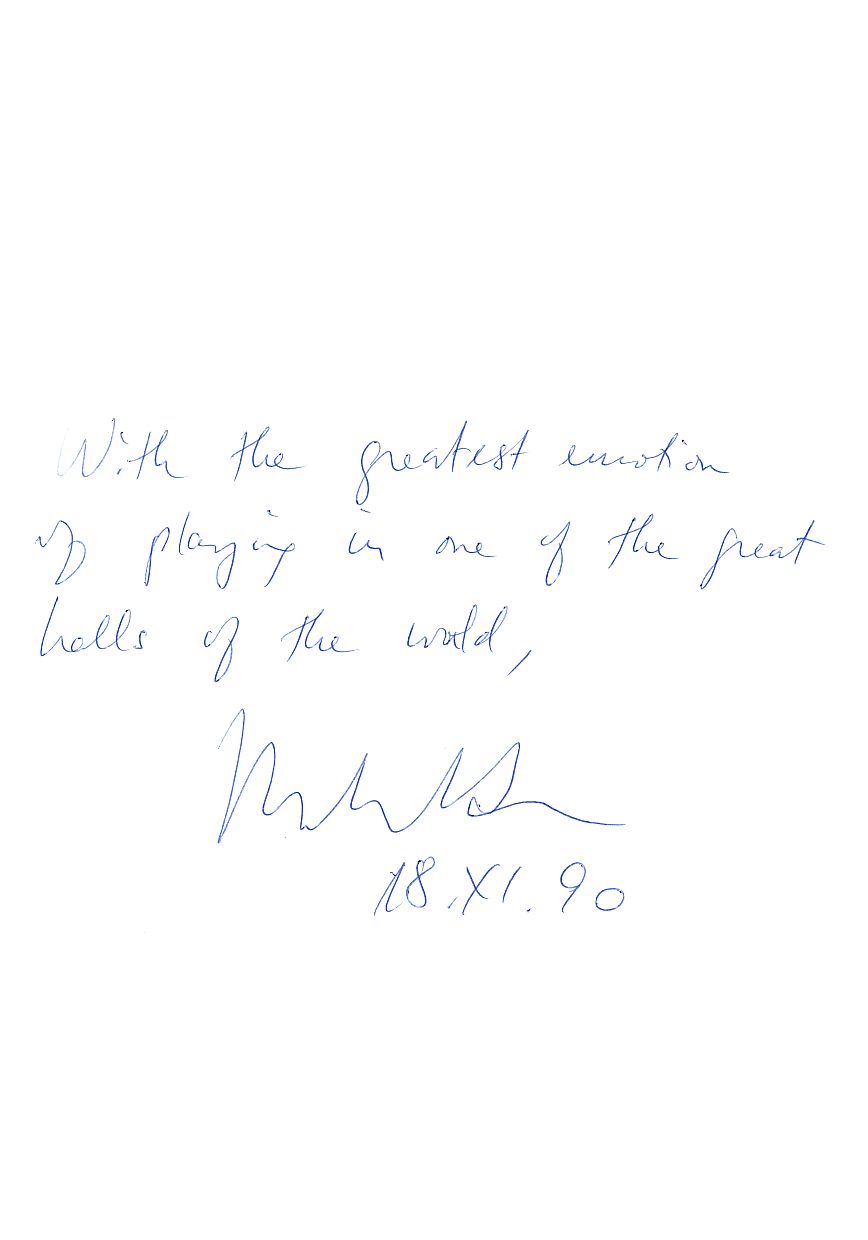 With the greatest emotion
of playing in one of the great
halls of the world,
18.XI.90